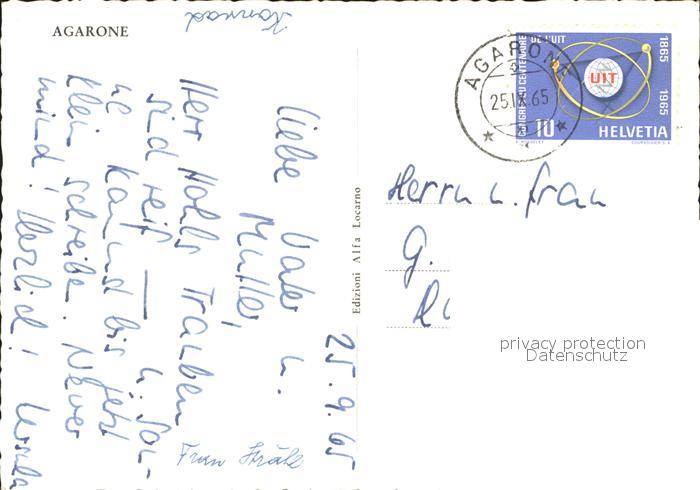 AGARONE
Konrad
25.9.65
Liebe Vater u.
Mutter,
Herr Hohls Trauben
sind reif — u. Sau-
ne kann bis jetzt
klein schreibe. Never
mind! Herzlich! Ursula
Frau Strätz
Edizioni Alfa Locarno
AGARONE
25.IX.65
CONGRES DU CENTENAIRE
DE L'UIT
1865
1965
UIT
10
HELVETIA
COURVOISIER S.A.
Herrn u. Frau
G.
privacy protection
Datenschutz